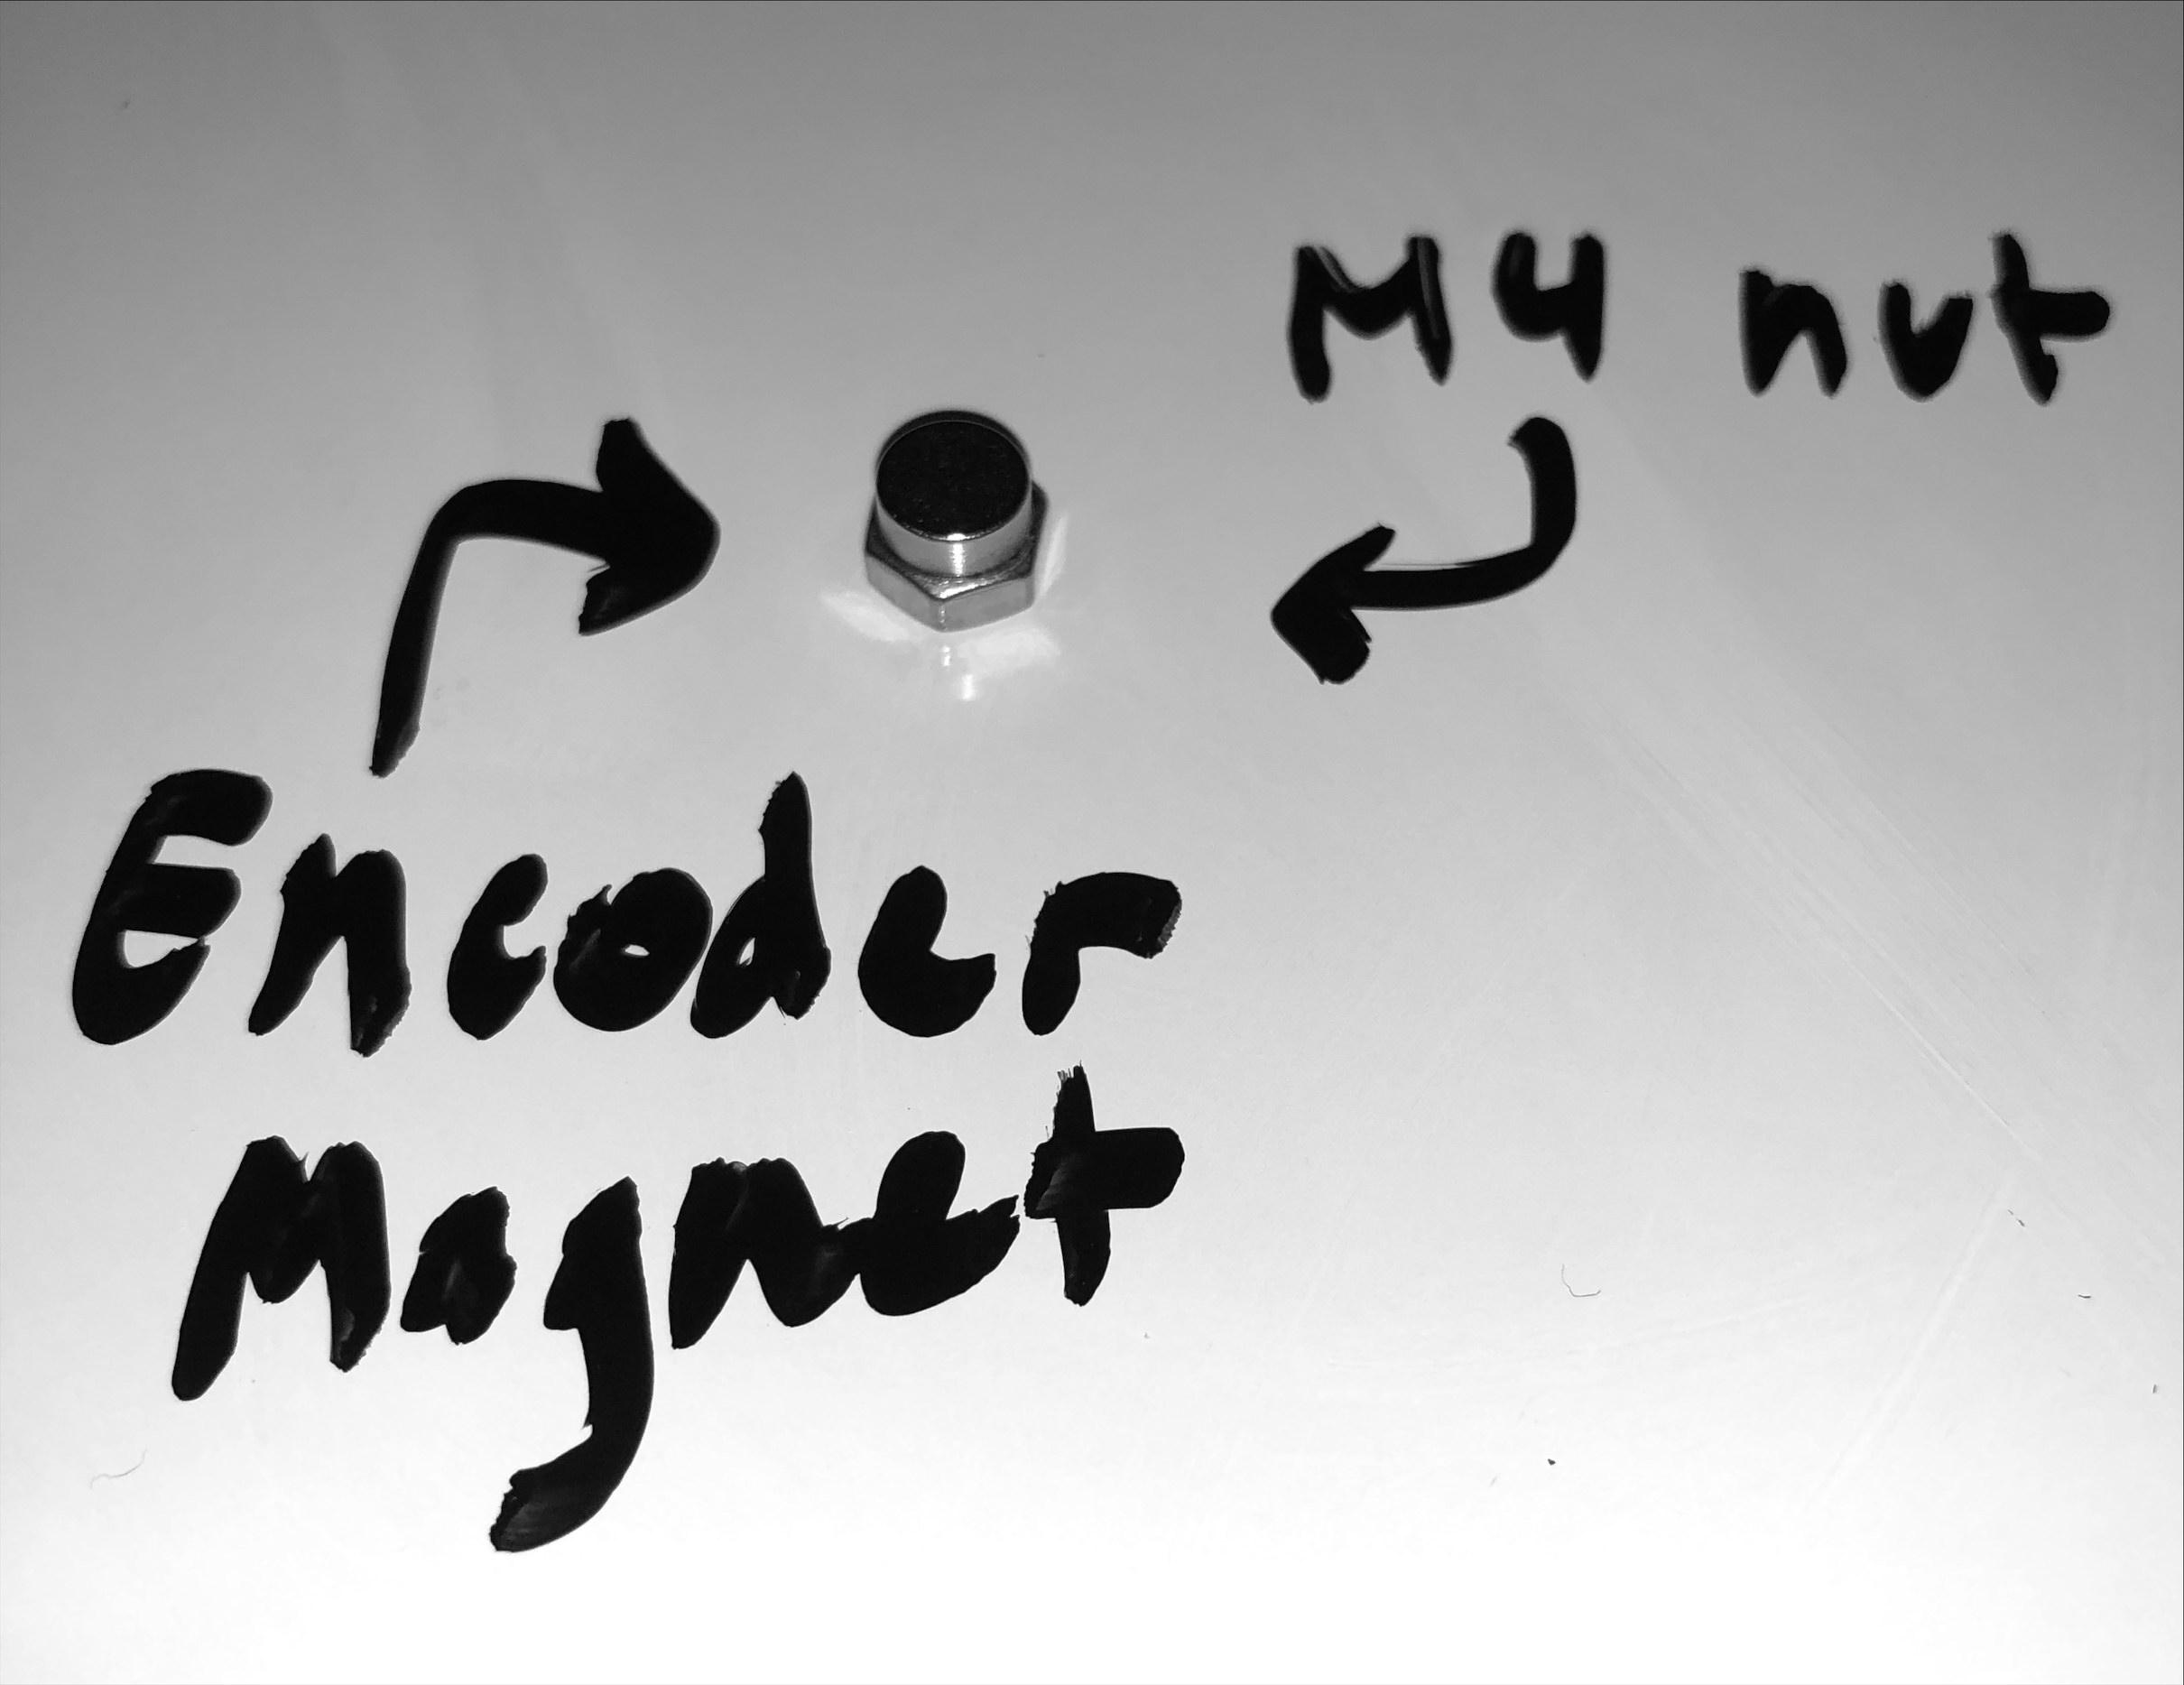 M4 nut
Encoder
Magnet